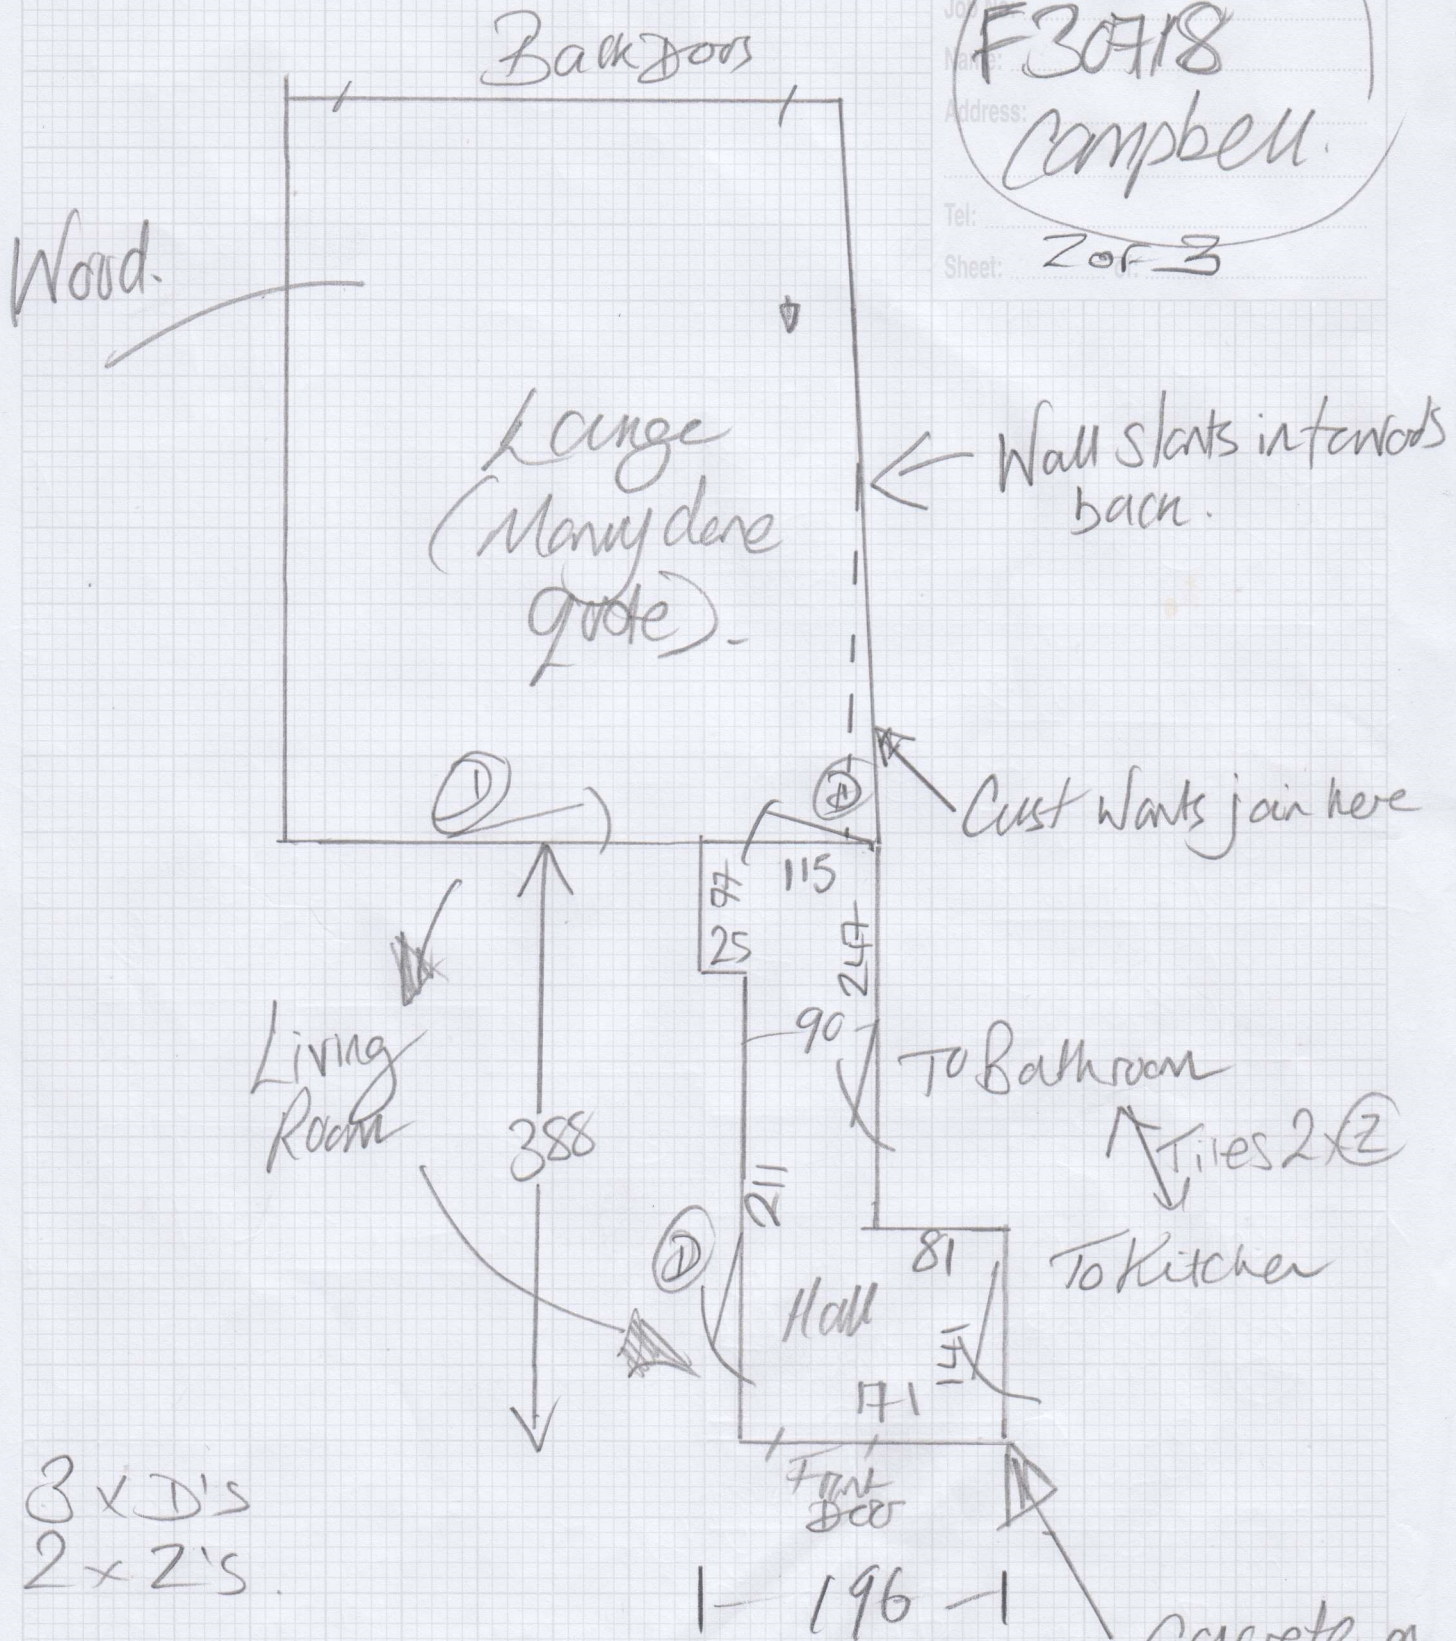 Back Doors
Job No:
Name: F30718
Address: Campbell.
Tel:
Sheet: 2 of 3
Wood.
Lounge
(Manny done
quote).
Wall slants in towards
back.
Cust wants join here
D
D
115
97
25
247
90
To Bathroom
Tiles 2 x Z
To Kitchen
Living
Room
388
211
D
81
Hall
141
171
Front
Door
3 x D's
2 x Z's.
196